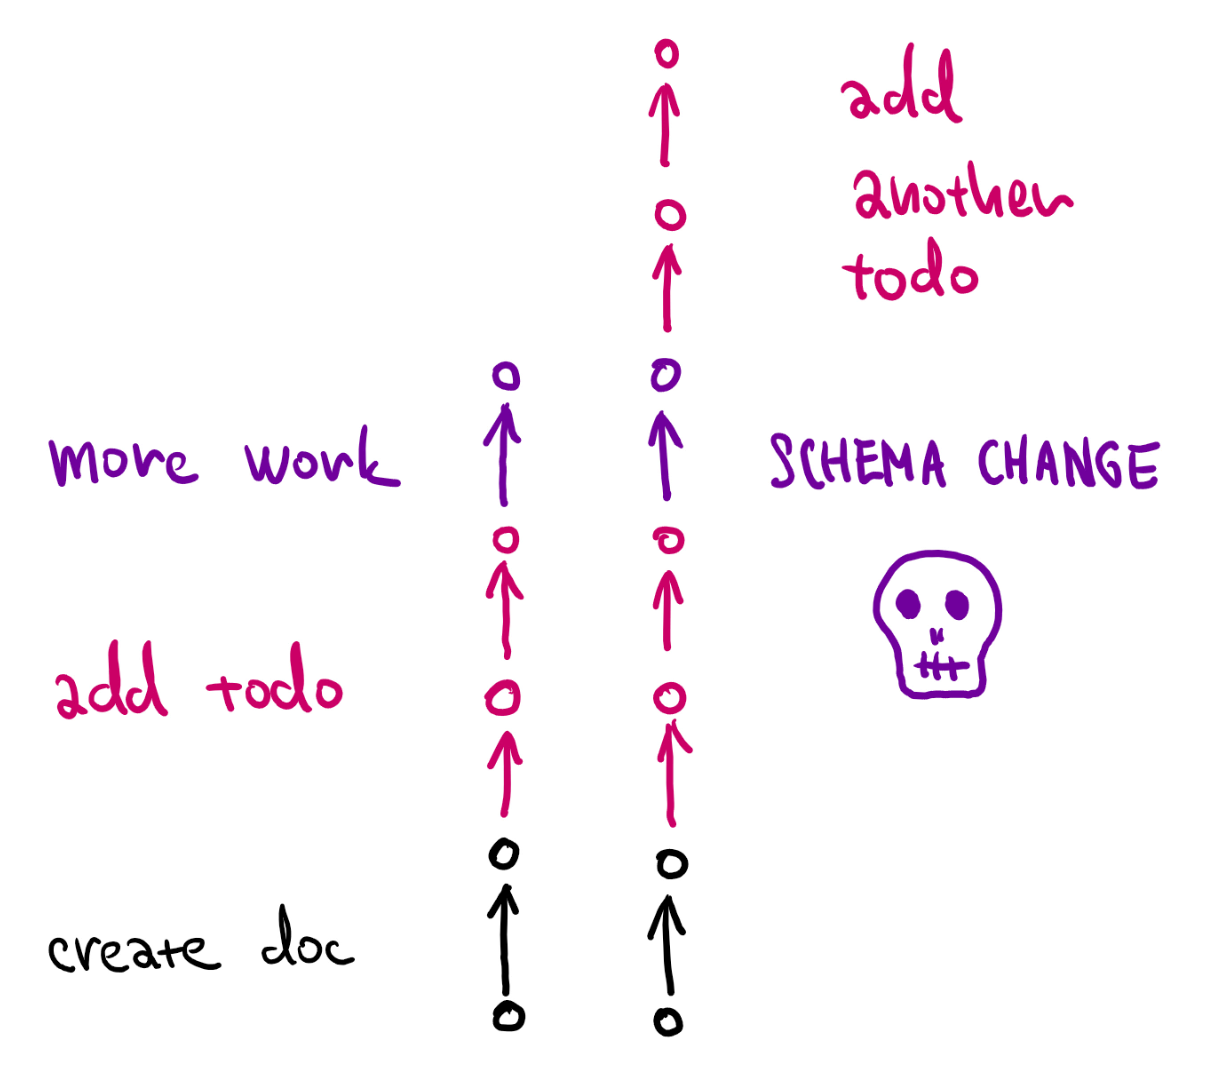 add
another
todo
more work
SCHEMA CHANGE
add todo
create doc